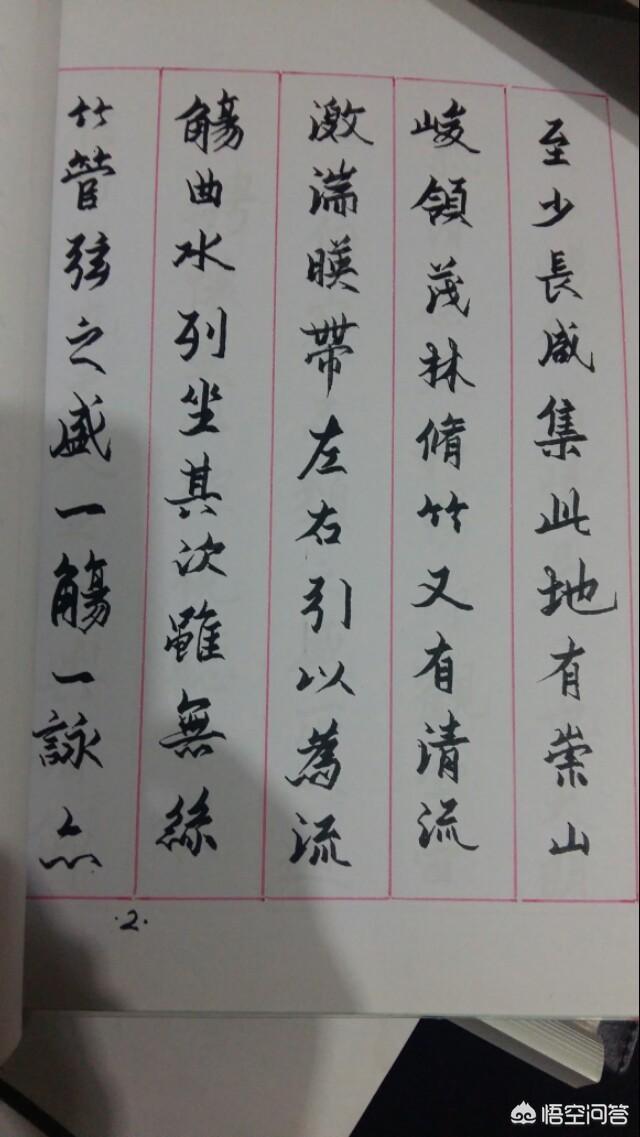 至少長咸集此地有崇山
峻領茂林脩竹又有清流
激湍暎帶左右引以為流
觴曲水列坐其次雖無絲
竹管弦之盛一觴一詠亦
·2·
悟空问答